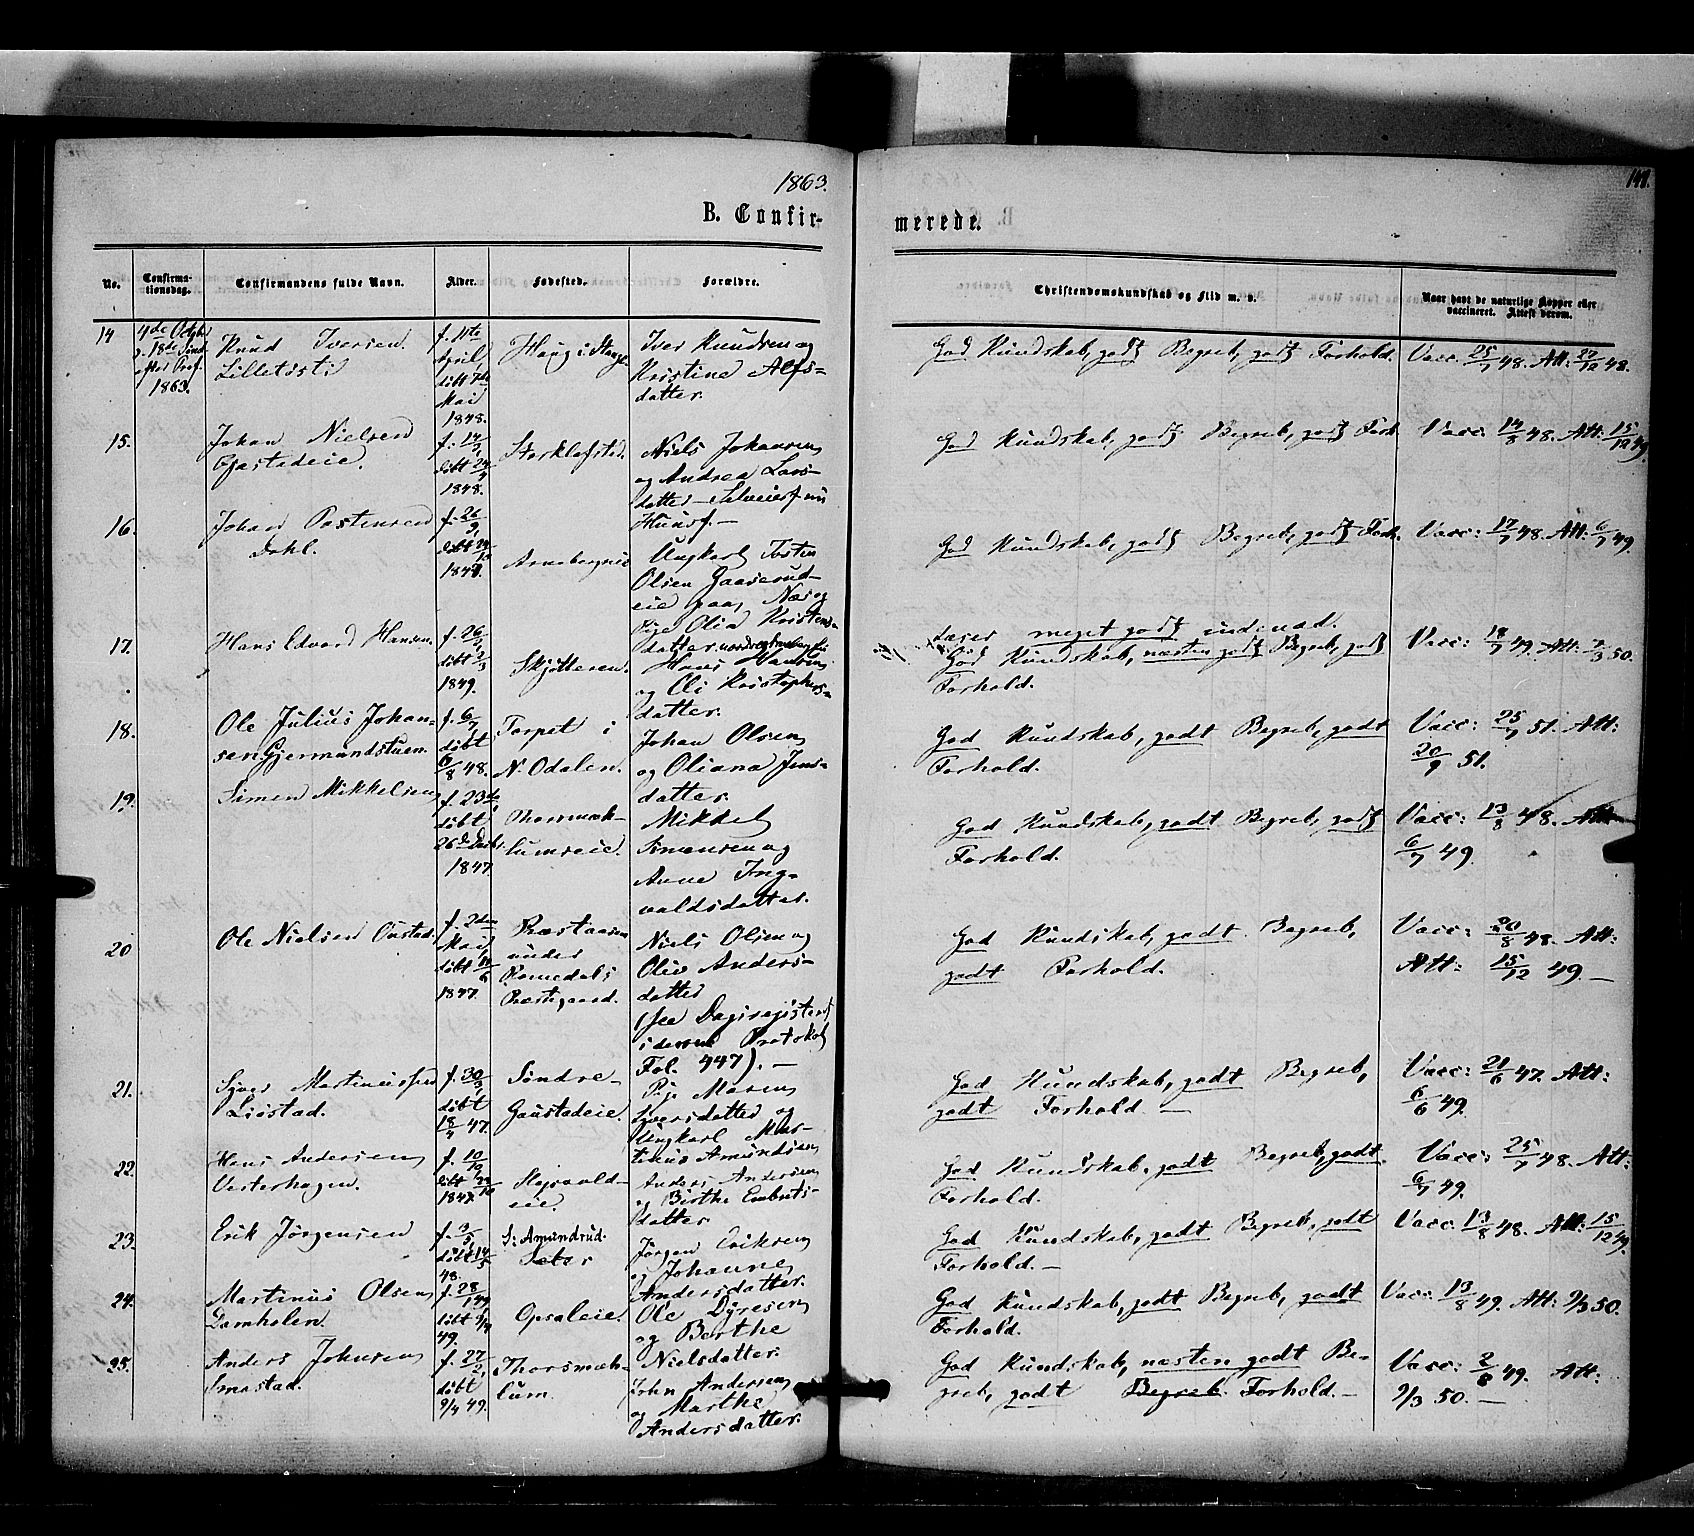 1863.
B. Confir-
merede.
No.
Confirma-
tionsdag.
Confirmandens fulde Navn.
Alder.
Fødested.
Forældre.
Christendomskundskab og Flid m. v.
Naar havt de naturlige Kopper eller
vaccineret. Attest derom.
14
4de Octbr
18de Sønd
efter
1863.
Knud Iversen
f. 11te
April
døbt 7de
Mai
1848.
Haug i
Iver Knudsen og
Kristine Alfs-
datter.
God Kundskab, godt Begreb, godt Forhold.
Vacc 25/7 48. Att: 27/12 48.
15.
Johan Nielsen
døbt 24/4
1848.
Niels Johansen
og Andrea Lars-
datter
God Kundskab, godt Begreb, godt Forh.
Vacc: 14/8 48. Att: 15/12 49.
16.
Johan Tostensen
Dahl.
f. 26/9
Ungkarl Tosten
Olsen
eie paa Næs og
Pige Olia Kristens-
datter
God Kundskab, godt Begreb, godt Forh.
Vacc: 17/7 48. Att: 6/7 49.
17.
Hans Edvard Hansen.
f. 26/1
døbt 2/3
1849.
Skjötteren.
Hans Hansen
og Oli Kristophers-
datter.
Læser meget godt indenad.
God Kundskab, næsten godt Begreb, godt
Forhold.
Vacc: 18/7 49. Att: 7/3 50.
18.
Ole Julius Johan-
sen Gjermundstuen.
f. 6/7
døbt
6/8 48.
Torpet i
N. Odalen.
Johan Olsen
og Oliana Jens-
datter.
God Kundskab, godt Begreb, godt
Forhold.
Vacc: 25/7 51. Att:
20/9 51.
19.
Simen Mikkelsen
f. 23de
døbt
26de Decbr.
1847
lumseie.
Mikkel
Simensen og
Anne Ing-
valdsdatter.
God Kundskab, godt Begreb, godt
Forhold.
Vacc: 13/8 48. Att
6/7 49.
20
Ole Nielsen Onstad.
f. 2den
Mai
døbt
1847.
Præstaasen
under
Romedals
Præstegaard.
Niels Olsen og
Oliv Anders-
datter
(see Dagregisteret
i denne Protokol
Fol. 447). —
God Kundskab, godt Begreb,
godt Forhold.
Vacc: 20/8 48. Att:
Att: 15/12 49 —
21.
Syver Martinussen
Liostad.
f. 30/3
døbt
18/4 47.
Søndre-
Gaustadeie.
Pige Maren
Syversdatter og
Ungkarl Mar-
tinus Amundsen
God Kundskab, godt Begreb,
godt Forhold —
Vacc: 21/6 47. Att:
6/6 49.
22.
Hans Andersen
Vesterhagen.
f. 10/9
1847.
eie.
Anders Andersen
og Birthe Embrets-
datter.
God Kundskab, godt Begreb, godt
Forhold.
Vacc: 25/7 48. Att:
6/7 49.
23.
Erik Jørgensen
f. 3/5
døbt 14/5
48.
S: Amundrud.
Jørgen Eriksen
og Johanne
Andersdatter.
God Kundskab, godt Begreb, godt
Forhold. —
Vacc. 13/8 48. Att: 15/12 49.
24.
Martinus Olsen
Damholen.
f. 28/1 49
døbt 9/4
49.
Opsaleie.
Ole Dyresen
og Berthe
Nielsdatter.
God Kundskab, godt Begreb, godt
Forhold.
Vacc: 13/8 49. Att: 9/3 50.
25.
Anders Johnsen
Smestad.
f. 27/2
døbt
9/4 49.
Thorsmæh-
lum.
John Andersen
og Marthe
Andersdatter.
God Kundskab, næsten godt Be-
greb, godt Begreb Forhold. —
Vacc: 2/8 49. Att:
9/3 50. —